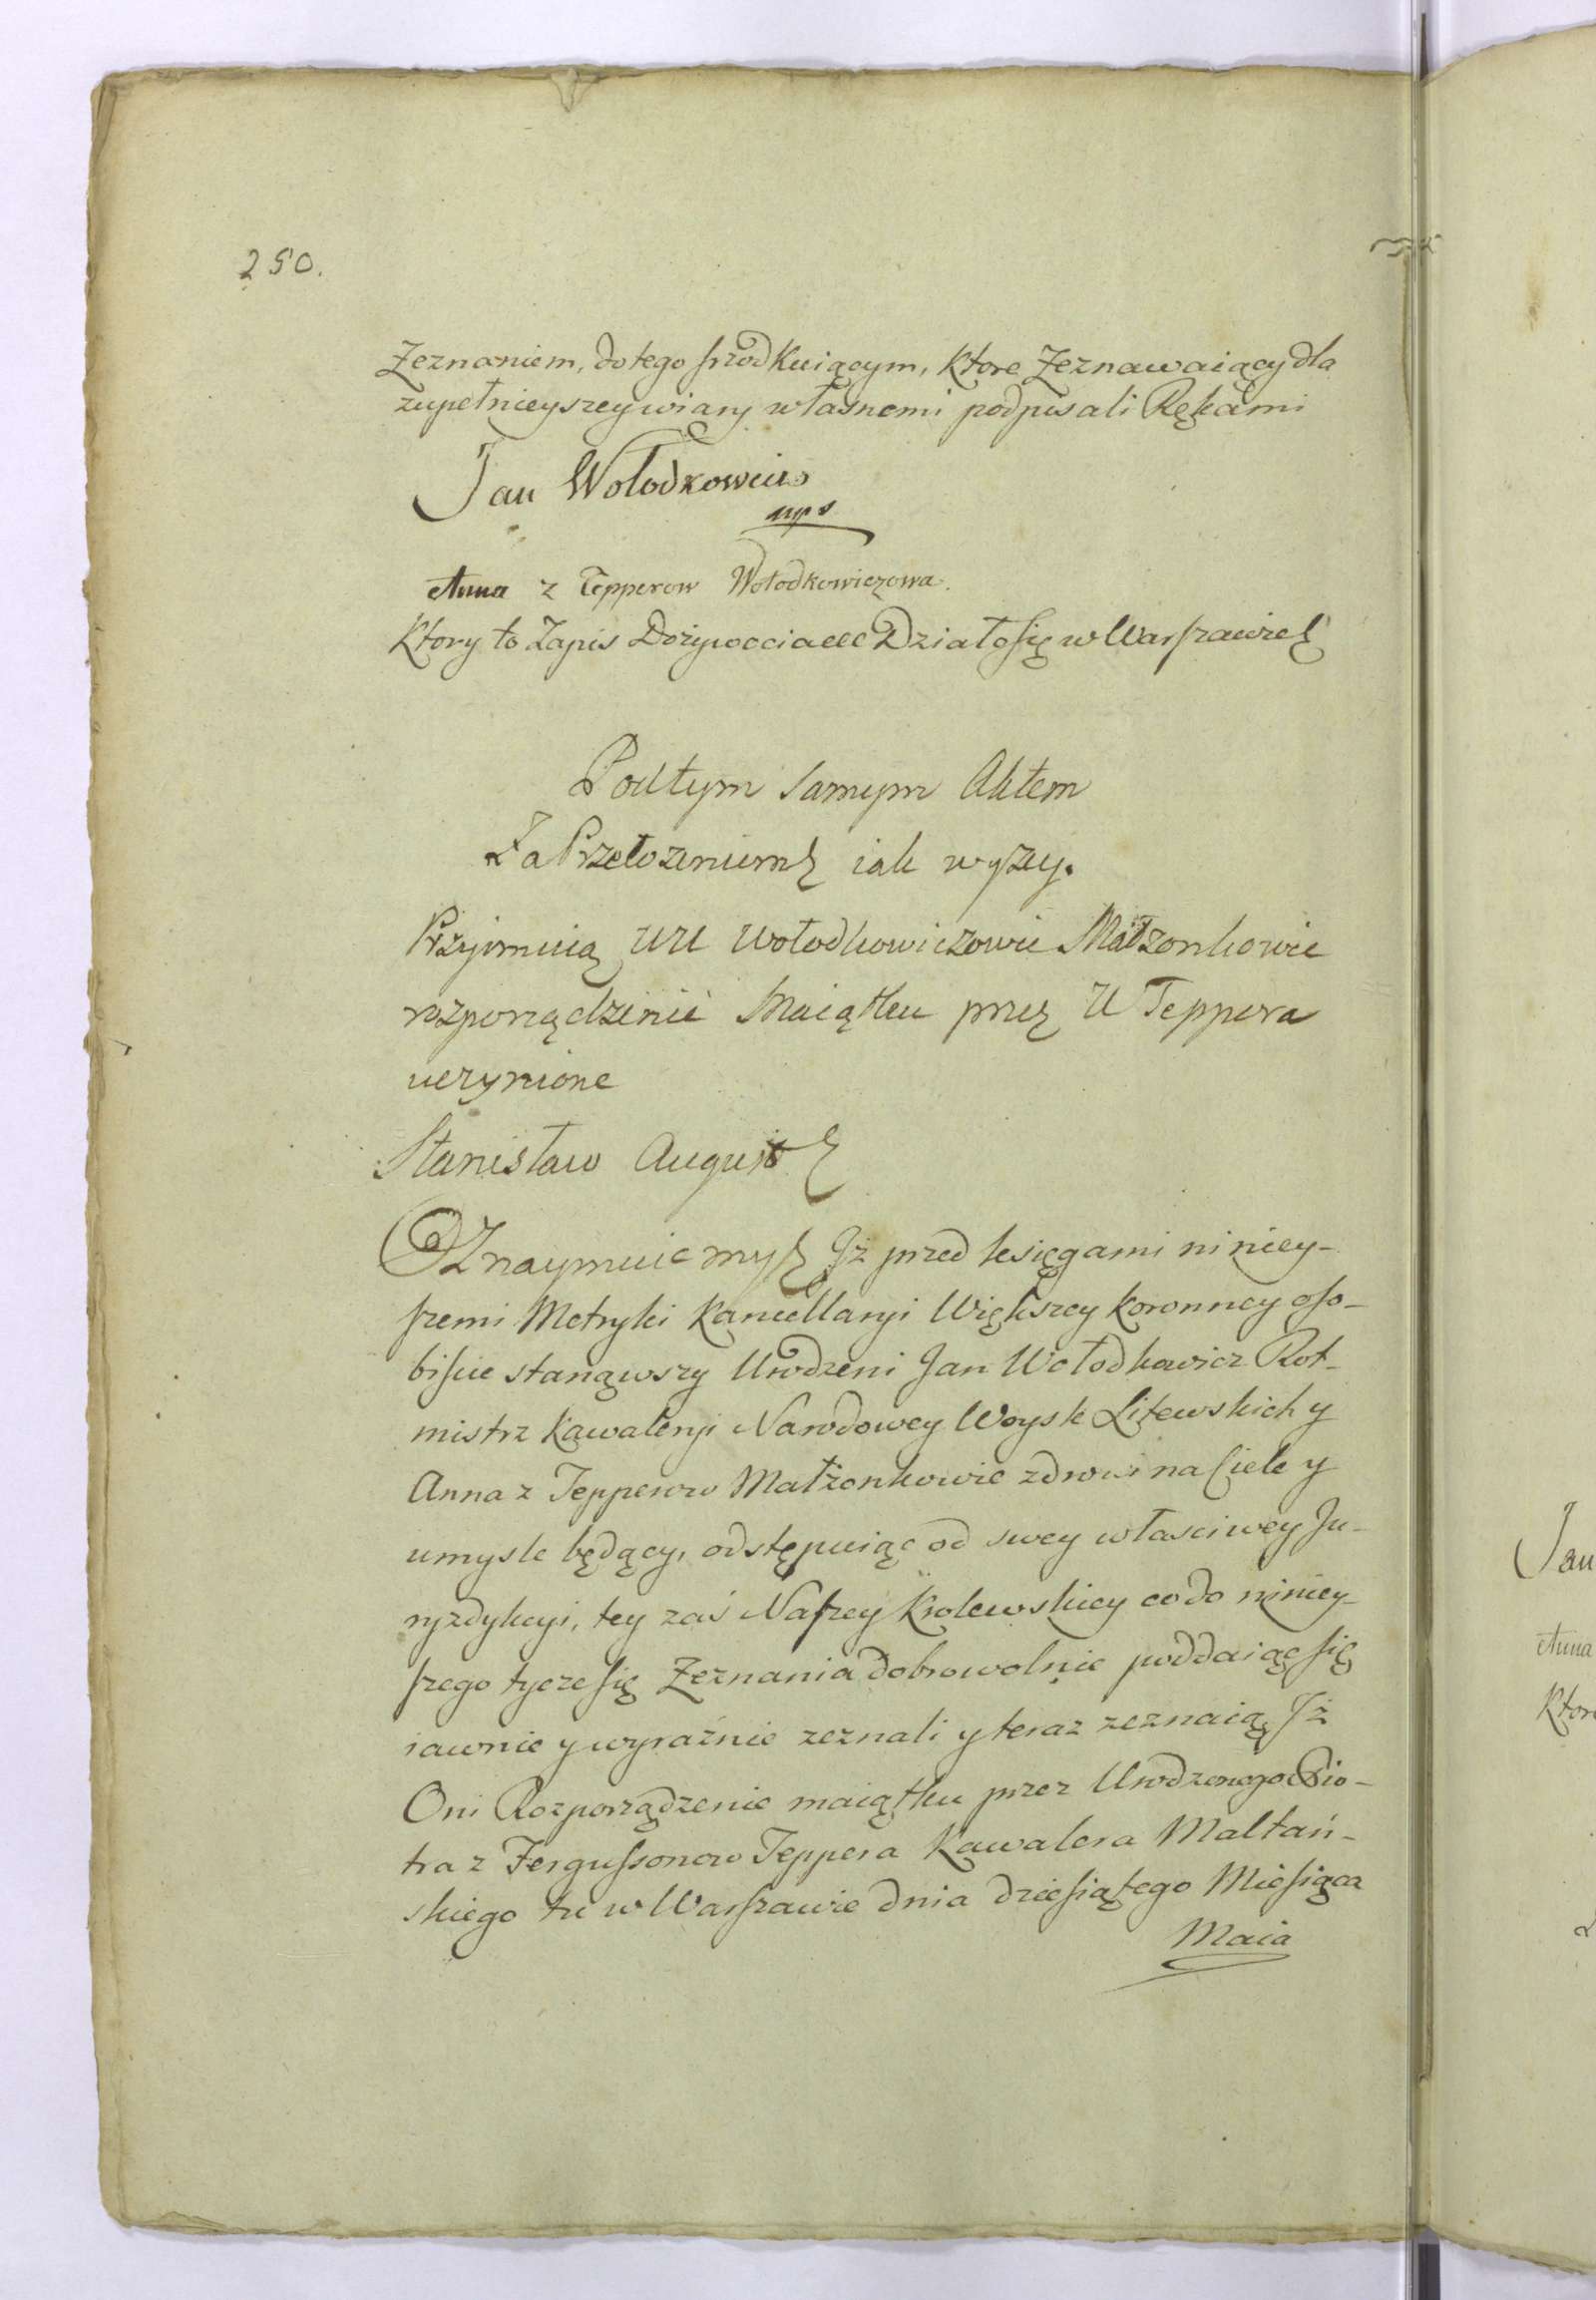 250.
Zeznaniem, do tego srzodkuiącym, ktore Zeznawaiący dla
zupełnieyszey wiary własnemi podpisali Rękami
Jan Wołodkowicz
mps
Anna z Tepperow Wołodkowiczowa.
Ktory to Zapis Dożywocia &&& Działo się w Warszawie
Pod tym samym Aktem
Za Przełozeniem iak wyzey.
Przyimuią UU Wołodkowiczowie Małzonkowie
rozporządzenie Maiątku przez U Teppera
uczynione
Stanisław August
Oznaymuiemy Iż przed księgami niniey-
szemi Metryki Kancellaryi Większey Koronney oso-
biscie stanąwszy Urodzeni Jan Wołodkowicz Rot-
mistrz Kawaleryi Narodowey Woysk Litewskich y
Anna z Tepperow Małżonkowie zdrowi na Ciele y
umysle będący, odstępuiąc od swey własciwey Ju-
ryzdykcyi, tey zaś Naszey Krolewskiey co do niniey-
szego tycze się Zeznania dobrowolnie poddaiąc się
iawnie y wyraźnie zeznali y teraz zeznaią Iż
Oni Rozporządzenie maiątku przez Urodzonego Pio-
tra z Fergussonow Teppera Kawalera Maltań-
skiego tu w Warszawie dnia dziesiątego Miesiąca
Maia
Jan
Anna
Ktor